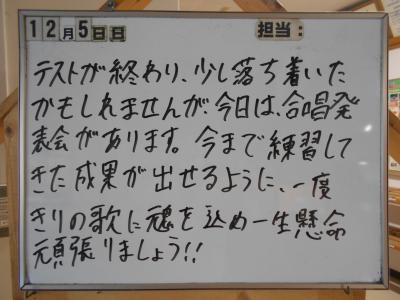 12月5日日 担当:
テストが終わり、少し落ち着いた
かもしれませんが、今日は、合唱発
表会があります。今まで練習して
きた成果が出せるように、一度
きりの歌に魂を込め一生懸命
頑張りましょう!!